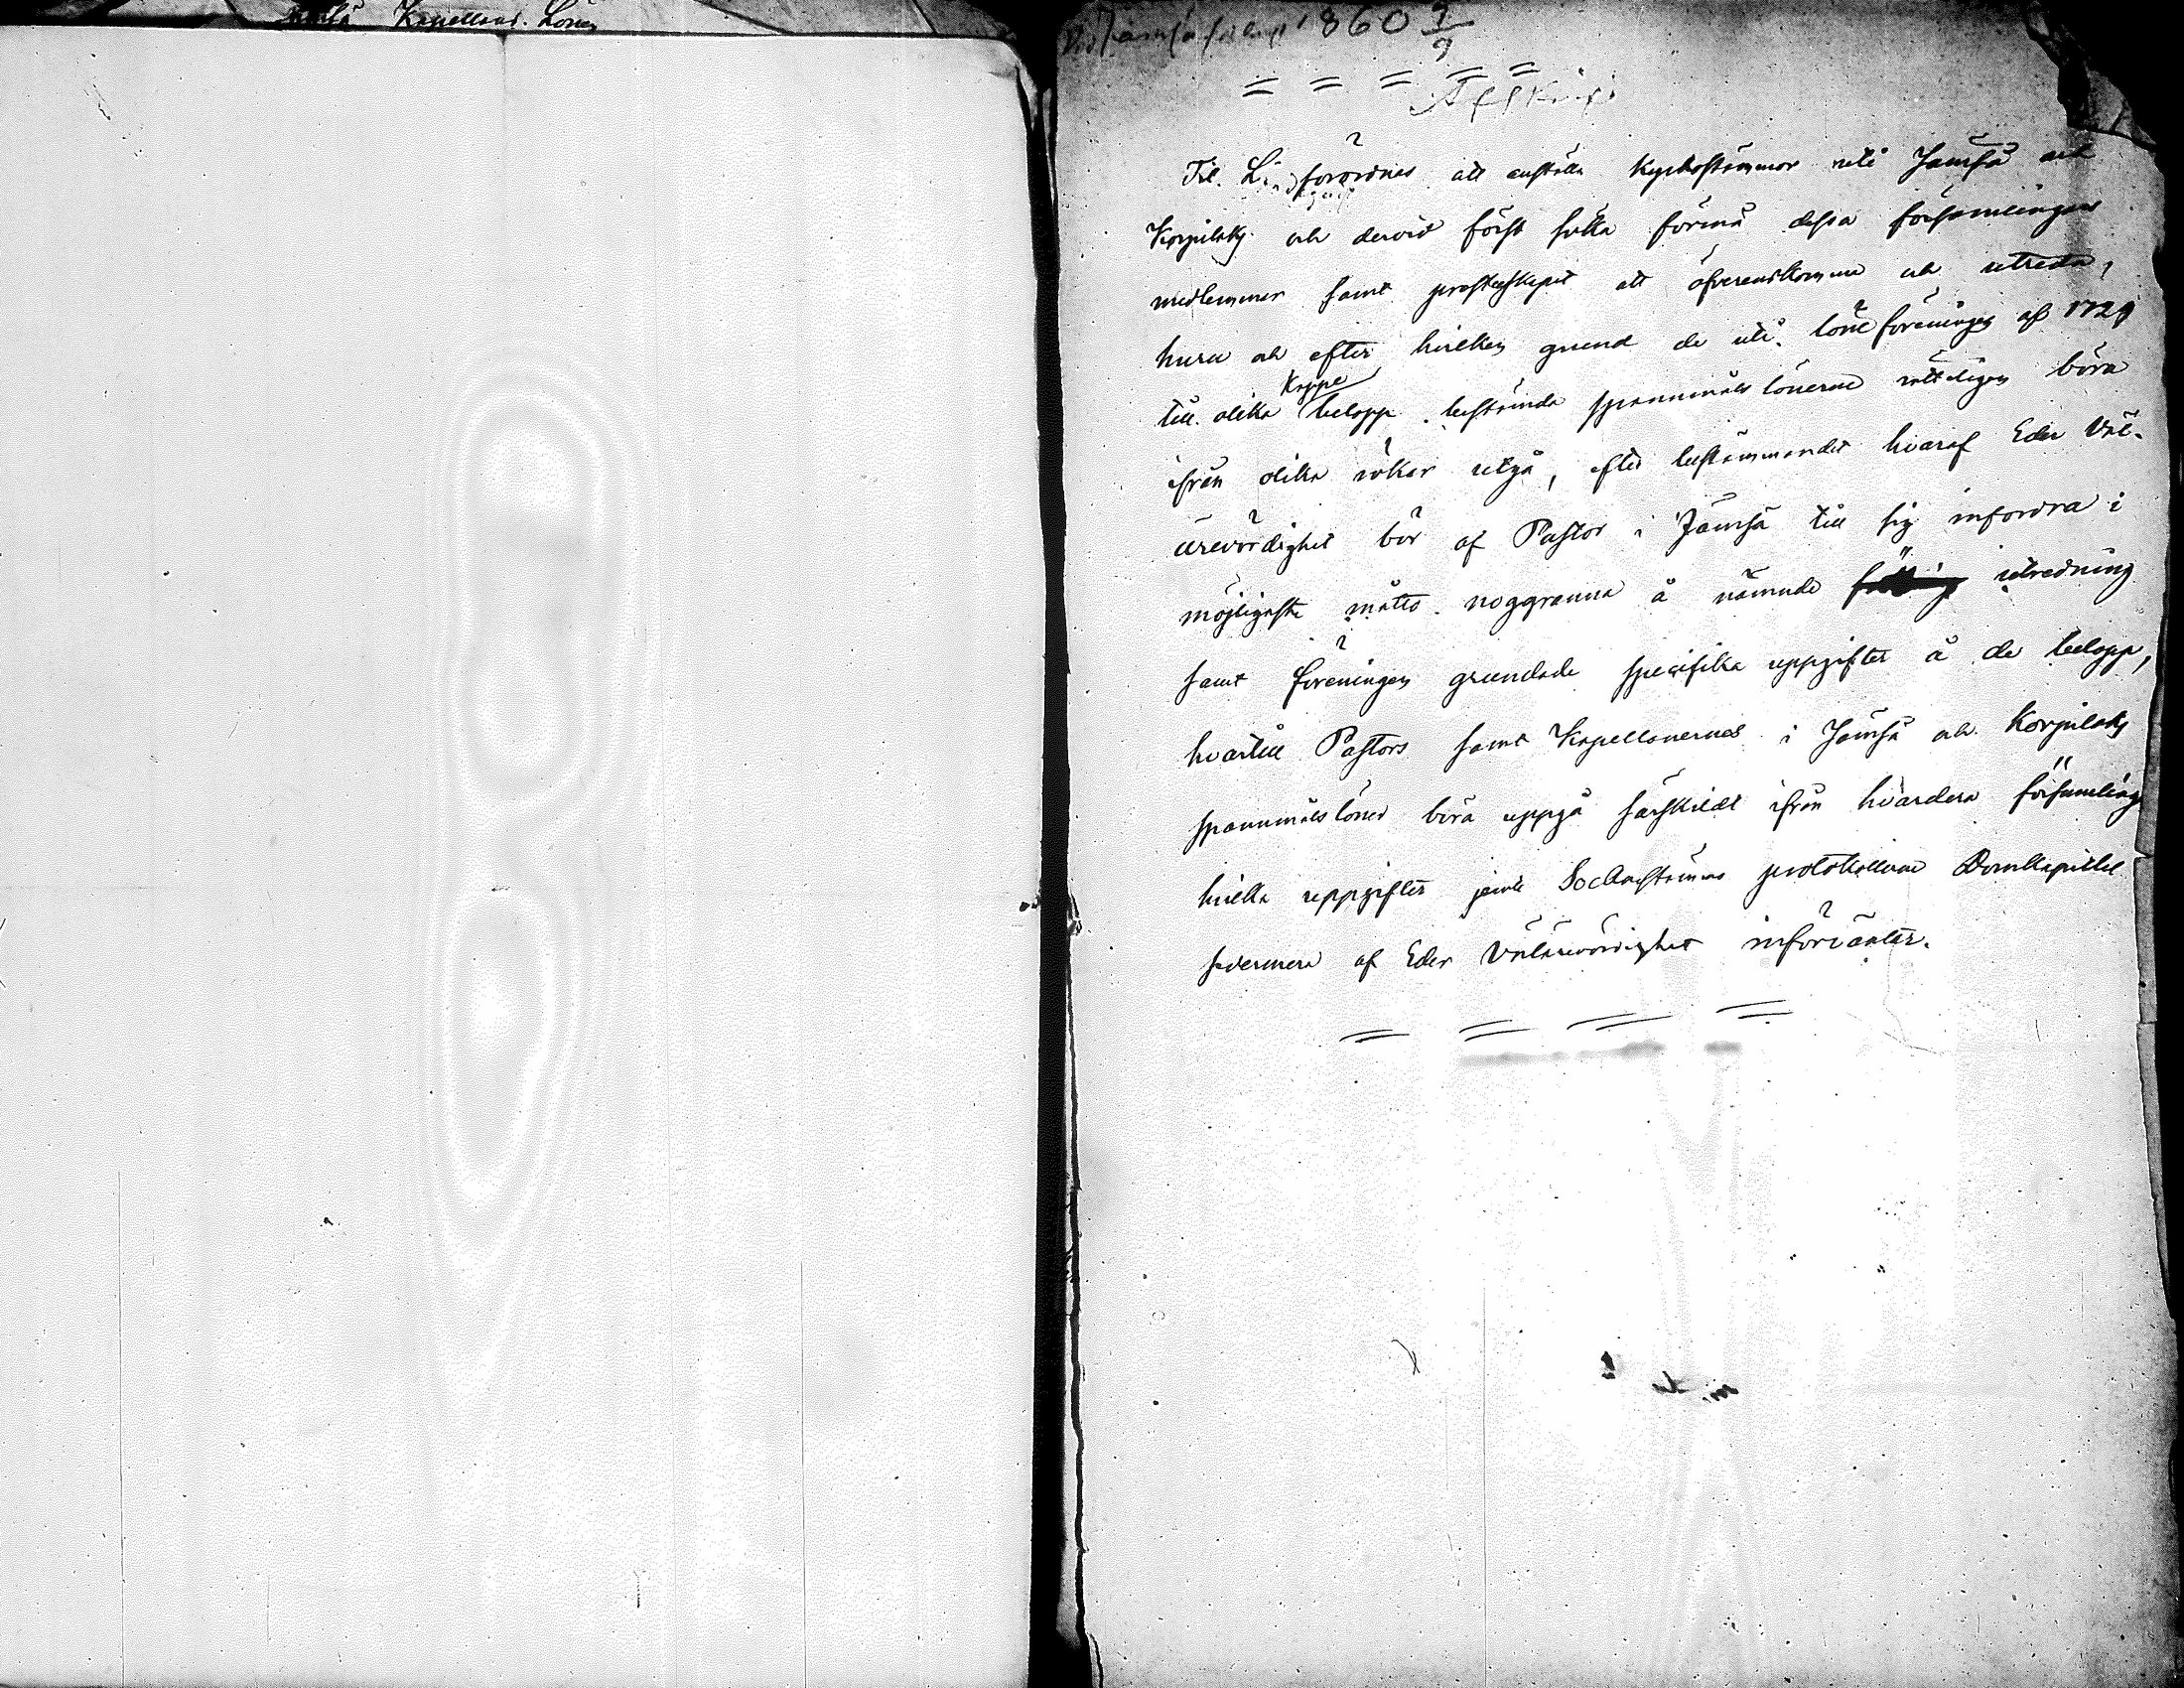 Jämsä Kapellans Lönen
1860 9/9
= = = = =
Afskrift
Til. L. förordnas att anställa Kyrkostämmor uti Jämsä och
Korpilaks och dervid först söka förmå dessa församlingars
medlemmar samt presterskapet att öfverenskomma och utreda,
huru och efter hvilken grund de uti löneföreningen af 1729
Kappe
till olika belopp bestämda spannmåls lönerne rätteligen böra
ifrån olika rökar utgå, efter bestämmandet hvaraf Eder Väl-
ärevördighet bör af Pastor i Jämsä till sig infordra i
möjligaste måtto noggranna å nämnde utredning
samt föreningen grundade specifika uppgifter å de belopp,
hvartill Pastors samt Kapellanernes i Jämsä och Korpilaks
spannmålslöner böra uppgå särskildt ifrån hvardera församling
hvilka uppgifter jemte Sockenstämmo protokollerne Domkapitlet
sedermera af Eder Välärevördighet införväntar.
= = = =